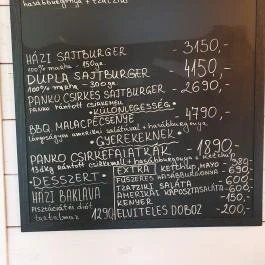 hasábburgonya + tzatziki
HÁZI SAJTBURGER - 3150,-
100% marha - 150g.
DUPLA SAJTBURGER 4150,-
100% marha - 300g
PANKO CSIRKÉS SAJTBURGER - 2690,-
panko rántott csirkemell
• KÜLÖNLEGESSÉG •
BBQ. MALACPECSENYE - 4790,-
amerikai salátával + hasábburgonya
• GYEREKEKNEK •
PANKO CSIRKEFALATKÁK - 1890,-
rántott csirkemell + hasábburgonya + ketchup
• DESSZERT •
HÁZI BAKLAVA
Pisztáciás és diós
1290
EXTRA KETCHUP, MAYO -
FŰSZERES HASÁBBURGONYA - 690,-
TZATZIKI SALÁTA - 600,-
AMERIKAI KÁPOSZTASALÁTA - 600,-
KENYÉR - 150,-
ELVITELES DOBOZ - 200,-